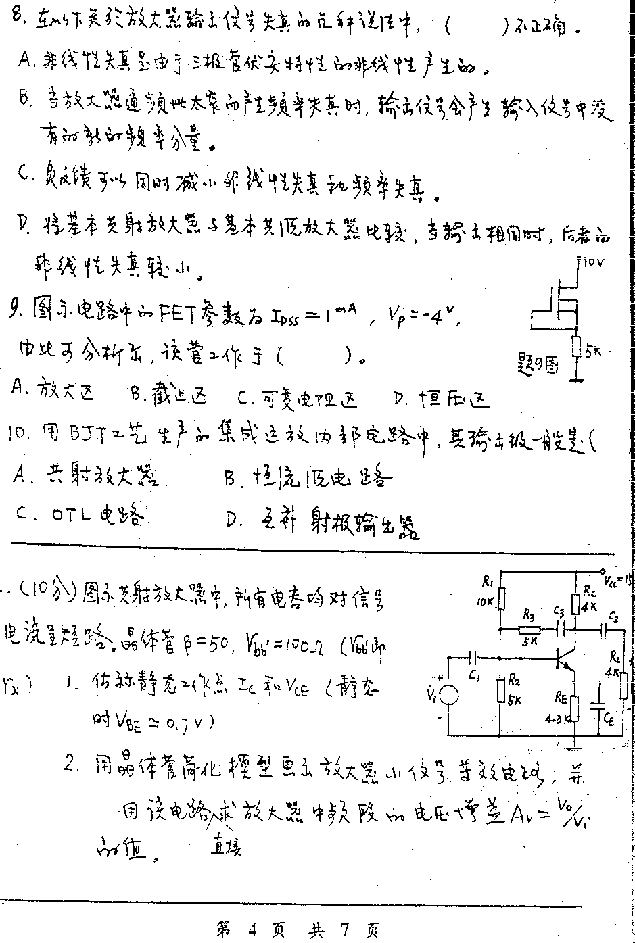 8. 在以下关于放大器输出信号失真的几种说法中, (      )不正确。
A. 非线性失真是由于三极管伏安特性的非线性产生的。
B. 当放大器通频带太窄而产生频率失真时, 输出信号会产生输入信号中没
有的新的频率分量。
C. 负反馈可以同时减小非线性失真和频率失真。
D. 将基本共射放大器与基本共源放大器比较, 当输出相同时, 后者的
非线性失真较小。
10V
5K
题9图
9. 图示电路中的FET参数为 IDSS=1mA, Vp=-4V,
由此可分析出, 该管工作于 (      )。
A. 放大区 B. 截止区 C. 可变电阻区 D. 恒压区
10. 用BJT工艺生产的集成运放内部电路中, 其输出极一般是(
A. 共射放大器 B. 恒流源电路
C. OTL电路 D. 互补射极输出器
(10分) 图示共射放大器中, 所有电容均对信号
电流呈短路。晶体管β=50, Vbb'=100Ω (Vbb'即
rx) 1. 估算静态工作点 Ic 和 VCE (静态
时VBE=0.7V)
2. 用晶体管简化模型画出放大器小信号等效电路; 并
用该电路直接求放大器中频段的电压增益 Av=Vo/Vi
的值。
R1
10K
Rc
4K
R3
5K
C3
C2
C1
Vi
R2
5K
RE
4.3K
CE
RL
4K
第 4 页 共 7 页